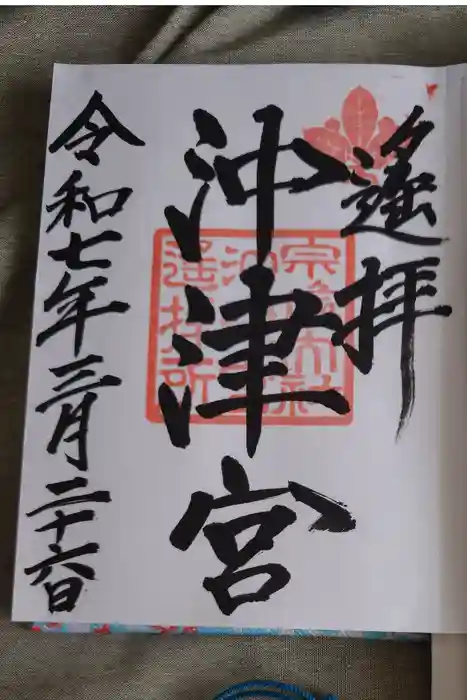 遥拝
沖津宮
令和七年三月二十六日
宗像大社
沖津宮
遥拝所